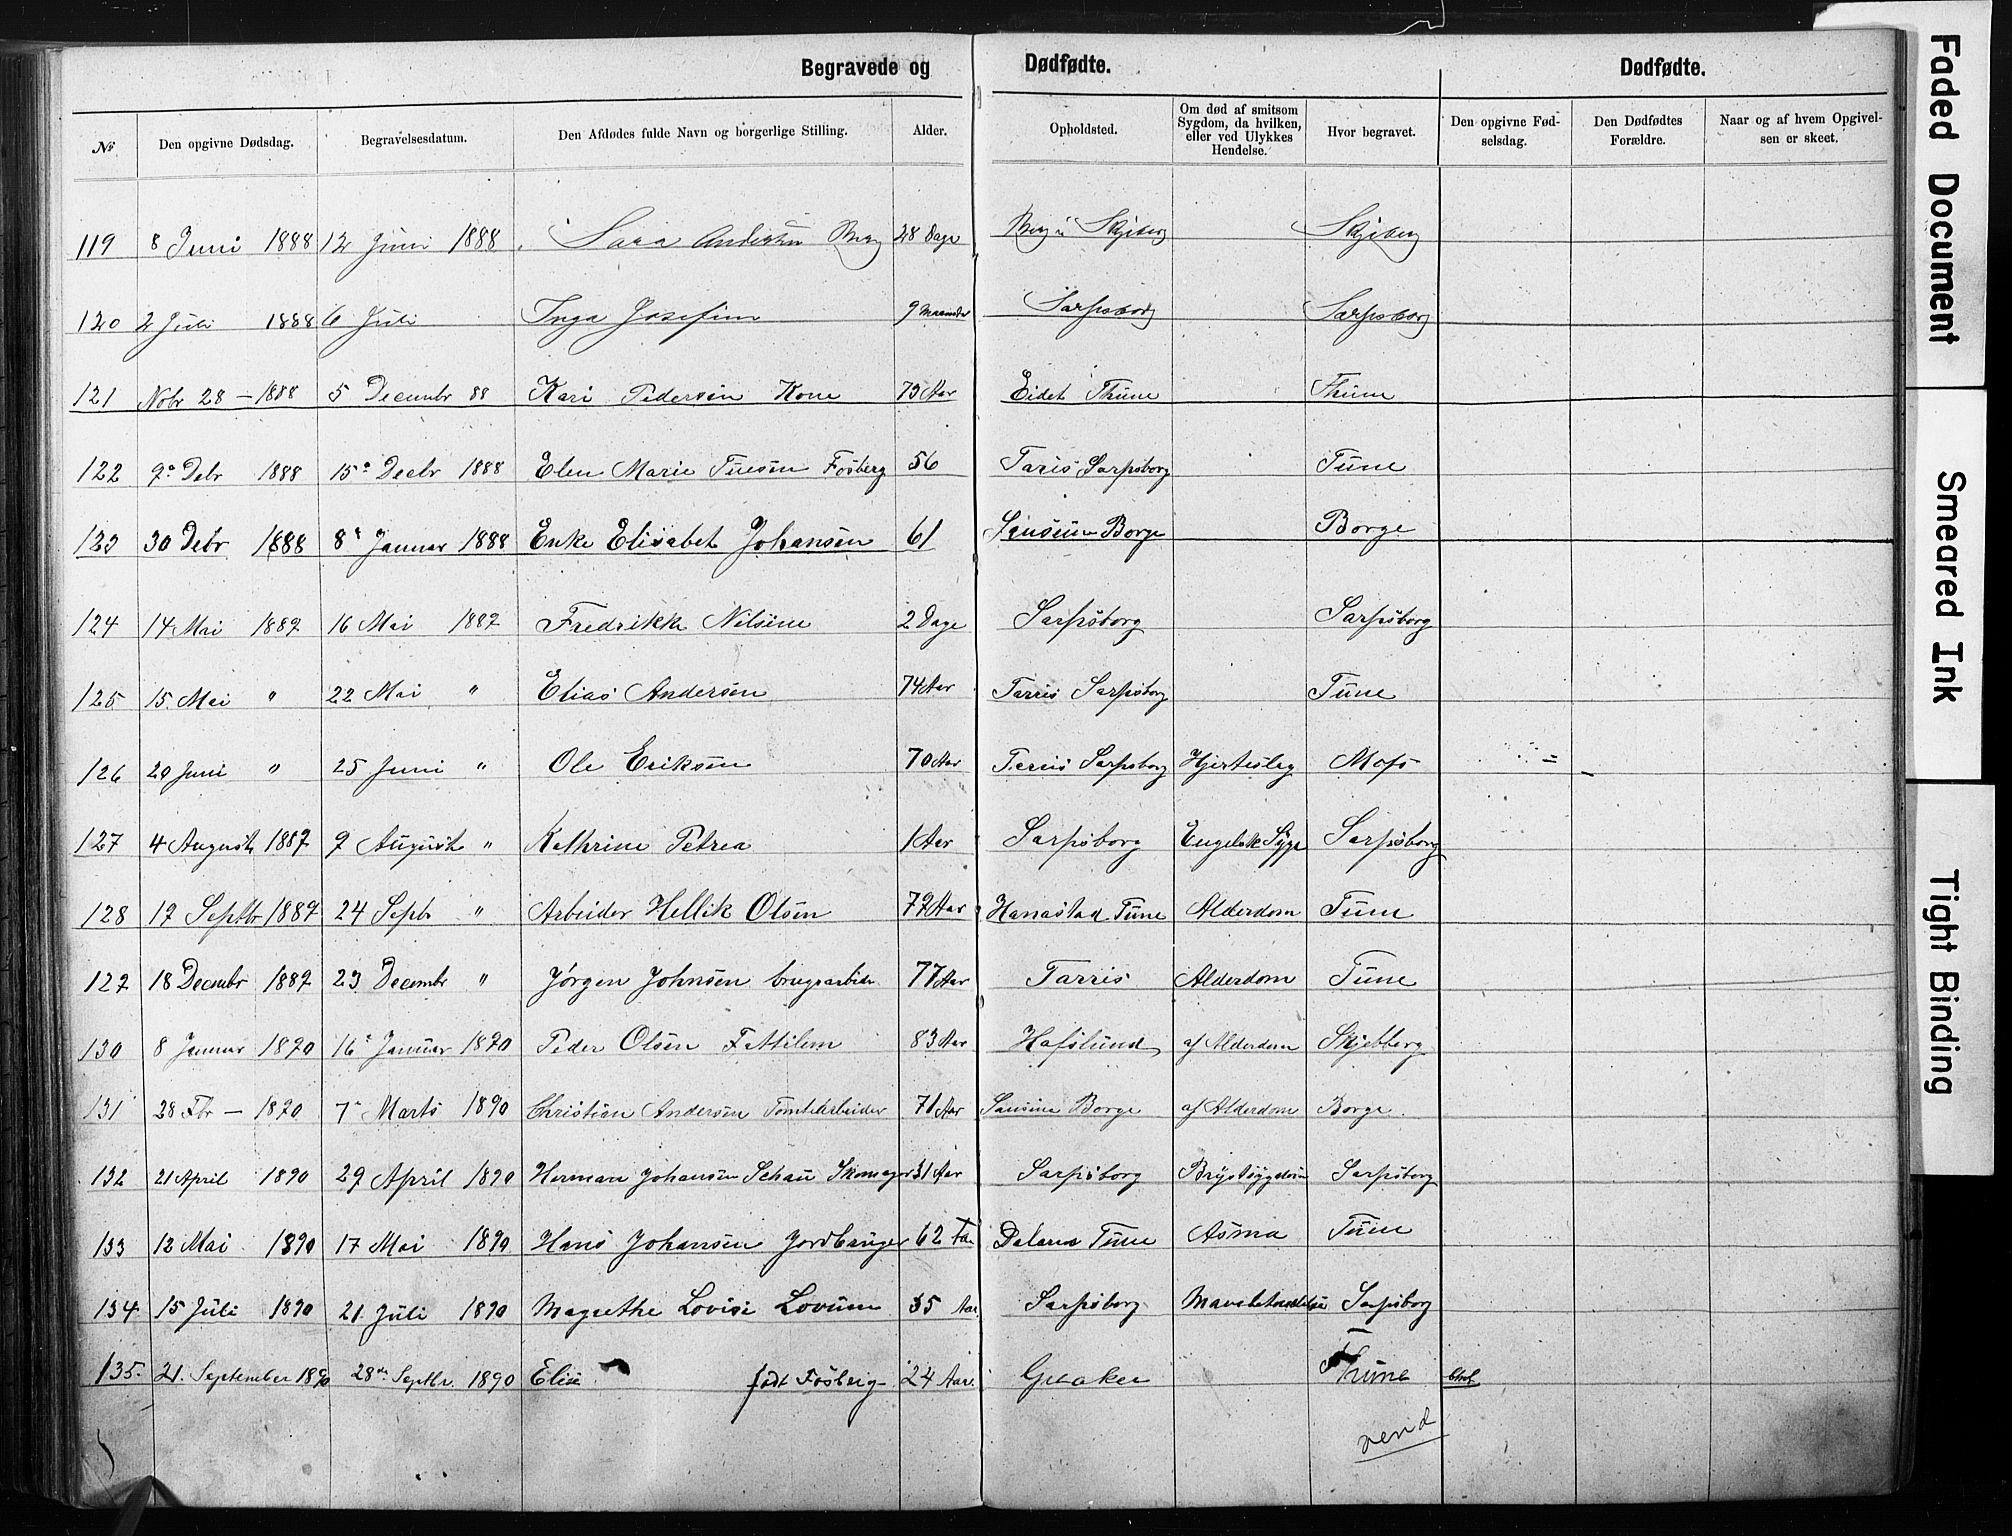 Begravede og Dødfødte. Dødfødte.
№ Den opgivne Dødsdag. Begravelsesdatum. Den Afdødes fulde Navn og borgerlige Stilling. Alder. Opholdsted. Om død af smitsom Sygdom, da hvilken, eller ved Ulykkes Hendelse. Hvor begravet. Den opgivne Fød-selsdag. Den Dødfødtes Forældre. Naar og af hvem Opgivel-sen er skeet.
119 8 Juni 1888 12 Juni 1888 Sara Andersen Berg 28 Dage Berg i Skjeberg Skjeberg
120 2 Juli 1888 6 Juli Inga Josefine 9 Maaneder Sarpsborg Sarpsborg
121 Nobr 28 – 1888 5 Decembr 88 Kari Pedersen Kone 75 Aar Eidet Thune Thune
122 9. Debr 1888 15. Decbr 1888 Elen Marie Fosberg 56 Taris Sarpsborg Tune
123 30 Debr 1888 8 Januar 1888 Enke Elisabet Johansen 61 Borge Borge
124 14 Mai 1889 16 Mai 1889 Fredrikke Nilsine 2 Dage Sarpsborg Sarpsborg
125 15. Mai " 22 Mai " Elias Andersen 74 Aar Tarris Sarpsborg Tune
126 20 Juni " 25 Juni " Ole Eriksen 70 Aar Sarpsborg Hjerteslag Moss
127 4 August 1889 9 August " Kathrine Petrea 1 Aar Sarpsborg Engelsk Syge Sarpsborg
128 19 Septbr 1889 24 Sepbr " Arbeider Hellik Olsen 79 Aar Hanastad Tune Alderdom Tune
129 18 Decembr 1889 23 Decembr " Jørgen Johnsen brugsarbeider 77 Aar Tarris Alderdom Tune
130 8 Januar 1890 16 Januar 1890 Peder Olsen 83 Aar Hafslund af Alderdom Skjebberg
131 28 Fbr – 1890 7 Marts 1890 Christian Andersen Tomtearbeider 71 Aar Borge af Alderdom Borge.
132 21 April 1890 29 April 1890 Herman Johansen Schau Skomager 31 Aar Sarpsborg Brystsygdom Sarpsborg
133 12 Mai 1890 17 Mai 1890 Hans Johansen Jordbruger 62 Aar Dalane Tune Asma Tune
134 15 Juli 1890 21. Juli 1890 Magrethe Lovise Lovum 35 Aar Sarpsborg Sarpsborg
135. 21. September 1890 28de Septbr. 1890 Elise født Fosberg 24 Aar Greaker Thune
vend
Faded Document
Smeared Ink
Tight Binding